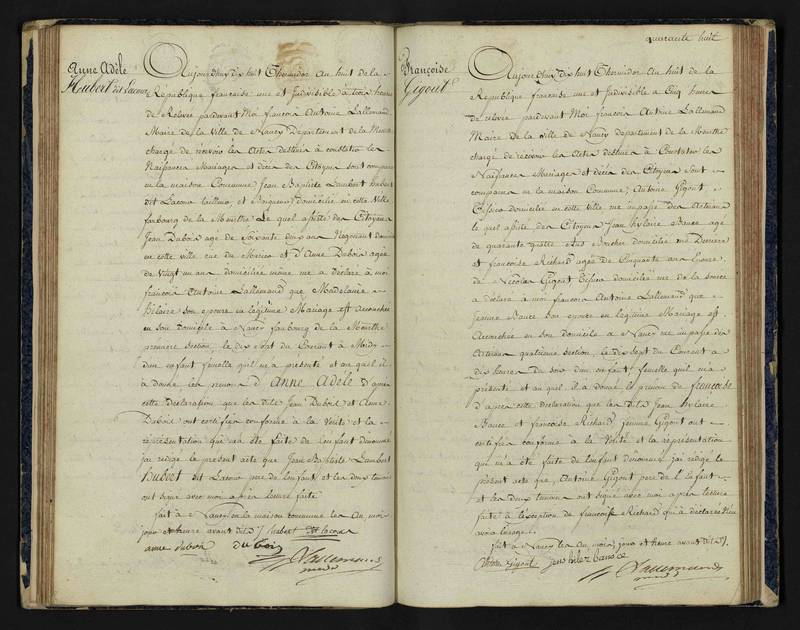 Anne Adèle
Hubert dit Lacour
Aujourd'huy dix huit Thermidor An huit de la
République française une et Indivisible à trois heures
de Relevée pardevant Moi françois Antoine Lallemand
Maire de la Ville de Nancy Département de la Meurthe
chargé de recevoir les Actes destinés à constater les
Naissances Mariages et décès des Citoyens sont comparus
en la maison Commune Jean Baptiste Lambert hubert
dit Lacour domicilié en cette Ville
faubourg de la Meurthe Le quel assisté des Citoyens
Jean Dubois agé de Soixante deux ans Negociant domicilié
en cette ville rue du et d'Anne Dubois agée
de Vingt un ans domiciliée même rue a déclaré à moi
françois Antoine Lallemand que Madelaine
helaire son epouse en légitime Mariage est accouchée
en son domicile à Nancy faubourg de la Meurthe
première section, le dix sept du Courant à Midy
d'un enfant femelle qu'il m'a présenté et au quel il
a donné les prenoms d'Anne Adèle d'après
cette déclaration que les dits Jean Dubois et Anne
Dubois ont certifiée conforme à la Vérité et la
représentation qui m'a été faite de l'enfant denommé
j'ai redigé le présent acte que Jean Baptiste Lambert
Hubert dit Lacour pere de l'enfant et les deux temoins
ont signé avec moi après lecture faite
fait à Nancy en la maison commune les An, mois
jour et heure avant dits hubert dit lacour
anne dubois dubois
Lallemand
maire
quarante huit
Françoise
Gigout
Aujourd'huy dix huit Thermidor An huit de la
République française une et Indivisible à Cinq heures
de relevée pardevant Moi françois Antoine Lallemand
Maire de la ville de Nancy département de la Meurthe
chargé de recevoir les Actes destinés à Constater les
Naissances Mariages et décès des Citoyens sont
comparus en la maison Commune, Antoine Gigout
domicilié en cette ville rue impasse des Artisans
le quel assisté des Citoyens Jean hylaire Bance agé
de quarante quatre Ans domicilié rue Derriere
et françoise Richard agée de Cinquante ans Epouse
de Nicolas Gigout domiciliée rue de la source
a déclaré à moi françois Antoine Lallemand que
Jeanne Bance Son epouse en légitime Mariage est
Accouchée en son domicile à Nancy rue impasse des
Artisans quatrième section, le dix sept du Courant à
dix heures du soir d'un enfant femelle qu'il m'a
présenté et au quel il a donné le prenom de françoise
d'après cette déclaration que les dits Jean hylaire
Bance et françoise Richard femme Gigout ont
certifiée conforme à la Vérité et la représentation
qui m'a été faite de l'enfant denommé j'ai redigé le
présent acte que, Antoine Gigout pere de l'Enfant
et les deux temoins ont signé avec moi après lecture
faite à l'exception de françoise Richard qui a déclaré
avoir l'usage
fait à Nancy les An mois, jour et heure avant dits
Gigout jean bance
Lallemand
maire